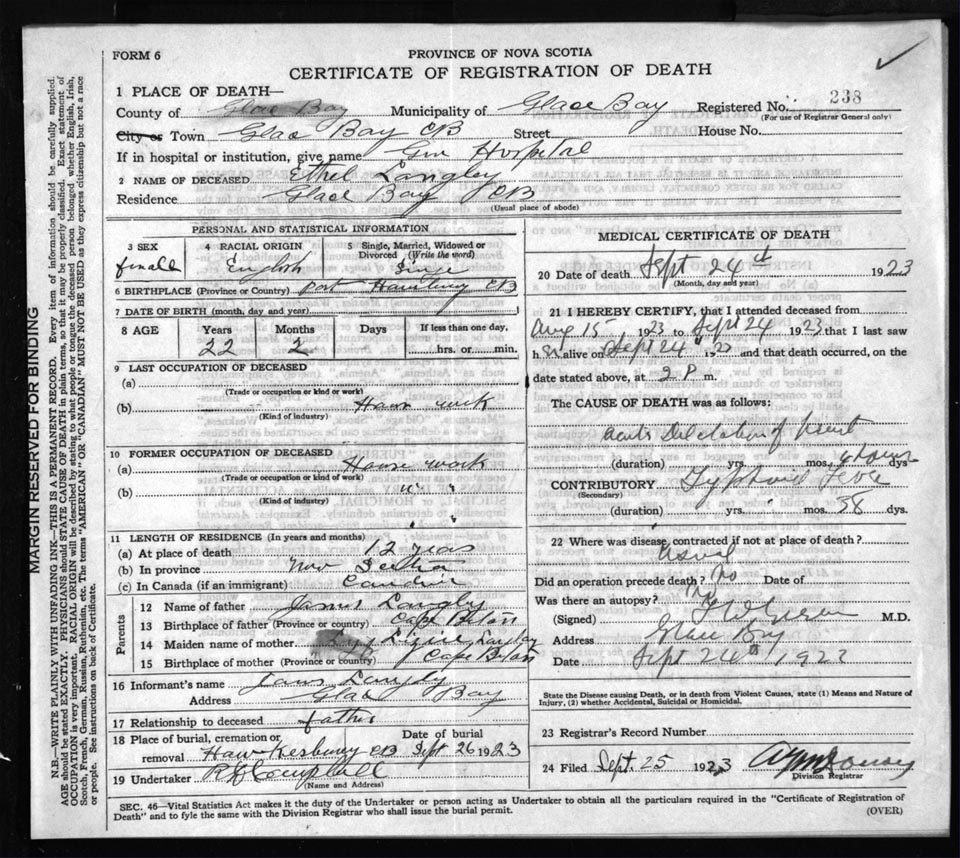 FORM 6
PROVINCE OF NOVA SCOTIA
CERTIFICATE OF REGISTRATION OF DEATH
1 PLACE OF DEATH—
County of Glace Bay Municipality of Glace Bay Registered No. 238
(For use of Registrar General only)
City or Town Glace Bay CB Street House No.
If in hospital or institution, give name Gen Hospital
2 NAME OF DECEASED Ethel Langley
Residence Glace Bay CB
(Usual place of abode)
PERSONAL AND STATISTICAL INFORMATION
3 SEX 4 RACIAL ORIGIN 5 Single, Married, Widowed or Divorced (Write the word)
female English
6 BIRTHPLACE (Province or Country) Port CB
7 DATE OF BIRTH (month, day and year)
8 AGE Years Months Days If less than one day,
22 2 hrs. or min.
9 LAST OCCUPATION OF DECEASED
(a)
(Trade or occupation or kind or work)
(b) work
(Kind of industry)
10 FORMER OCCUPATION OF DECEASED
(a) House work
(Trade or occupation or kind or work)
(b) " "
(Kind of industry)
" "
11 LENGTH OF RESIDENCE (In years and months)
(a) At place of death 12 years
(b) In province Nov Scotia
(c) In Canada (if an immigrant)
Parents
12 Name of father James Langley
13 Birthplace of father (Province or country) Cape Breton
14 Maiden name of mother Lizzie Langley
15 Birthplace of mother (Province or country) Cape Breton
16 Informant's name James Langley
Address Glace Bay
17 Relationship to deceased father
18 Place of burial, cremation or removal Date of burial
Hawkesbury CB Sept 26 1923
19 Undertaker Campbell
(Name and Address)
MEDICAL CERTIFICATE OF DEATH
20 Date of death Sept 24th 1923
(Month, day and year)
21 I HEREBY CERTIFY, that I attended deceased from
Aug 15 1923 to Sept 24 1923 that I last saw
h er alive on Sept 24 1923 and that death occurred, on the
date stated above, at 2 P m.
The CAUSE OF DEATH was as follows:
acute Dilatation of heart
(duration) yrs. mos. dys
CONTRIBUTORY Typhoid Fever
(Secondary)
(duration) yrs. mos. 38 dys.
22 Where was disease contracted if not at place of death?
Did an operation precede death? No Date of
Was there an autopsy? no
(Signed) M.D.
Address Glace Bay
Date Sept 24th 1923
State the Disease causing Death, or in death from Violent Causes, state (1) Means and Nature of
Injury, (2) whether Accidental, Suicidal or Homicidal.
23 Registrar's Record Number
24 Filed Sept. 25 1923
Division Registrar
SEC. 46—Vital Statistics Act makes it the duty of the Undertaker or person acting as Undertaker to obtain all the particulars required in the "Certificate of Registration of
Death" and to fyle the same with the Division Registrar who shall issue the burial permit.
(OVER)
MARGIN RESERVED FOR BINDING
N.B.—WRITE PLAINLY WITH UNFADING INK—THIS IS A PERMANENT RECORD. Every item of information should be carefully supplied.
AGE should be stated EXACTLY. PHYSICIANS should STATE CAUSE OF DEATH in plain terms, so that it may be properly classified. Exact statement of
OCCUPATION is very important. RACIAL ORIGIN will be described by stating to what people or tongue the deceased person belonged, whether English, Irish,
Scotch, French, German, Russian, Ruthenian, etc. The terms "AMERICAN" OR "CANADIAN" MUST NOT BE USED as they express citizenship but not a race
or people. See instructions on back of Certificate.